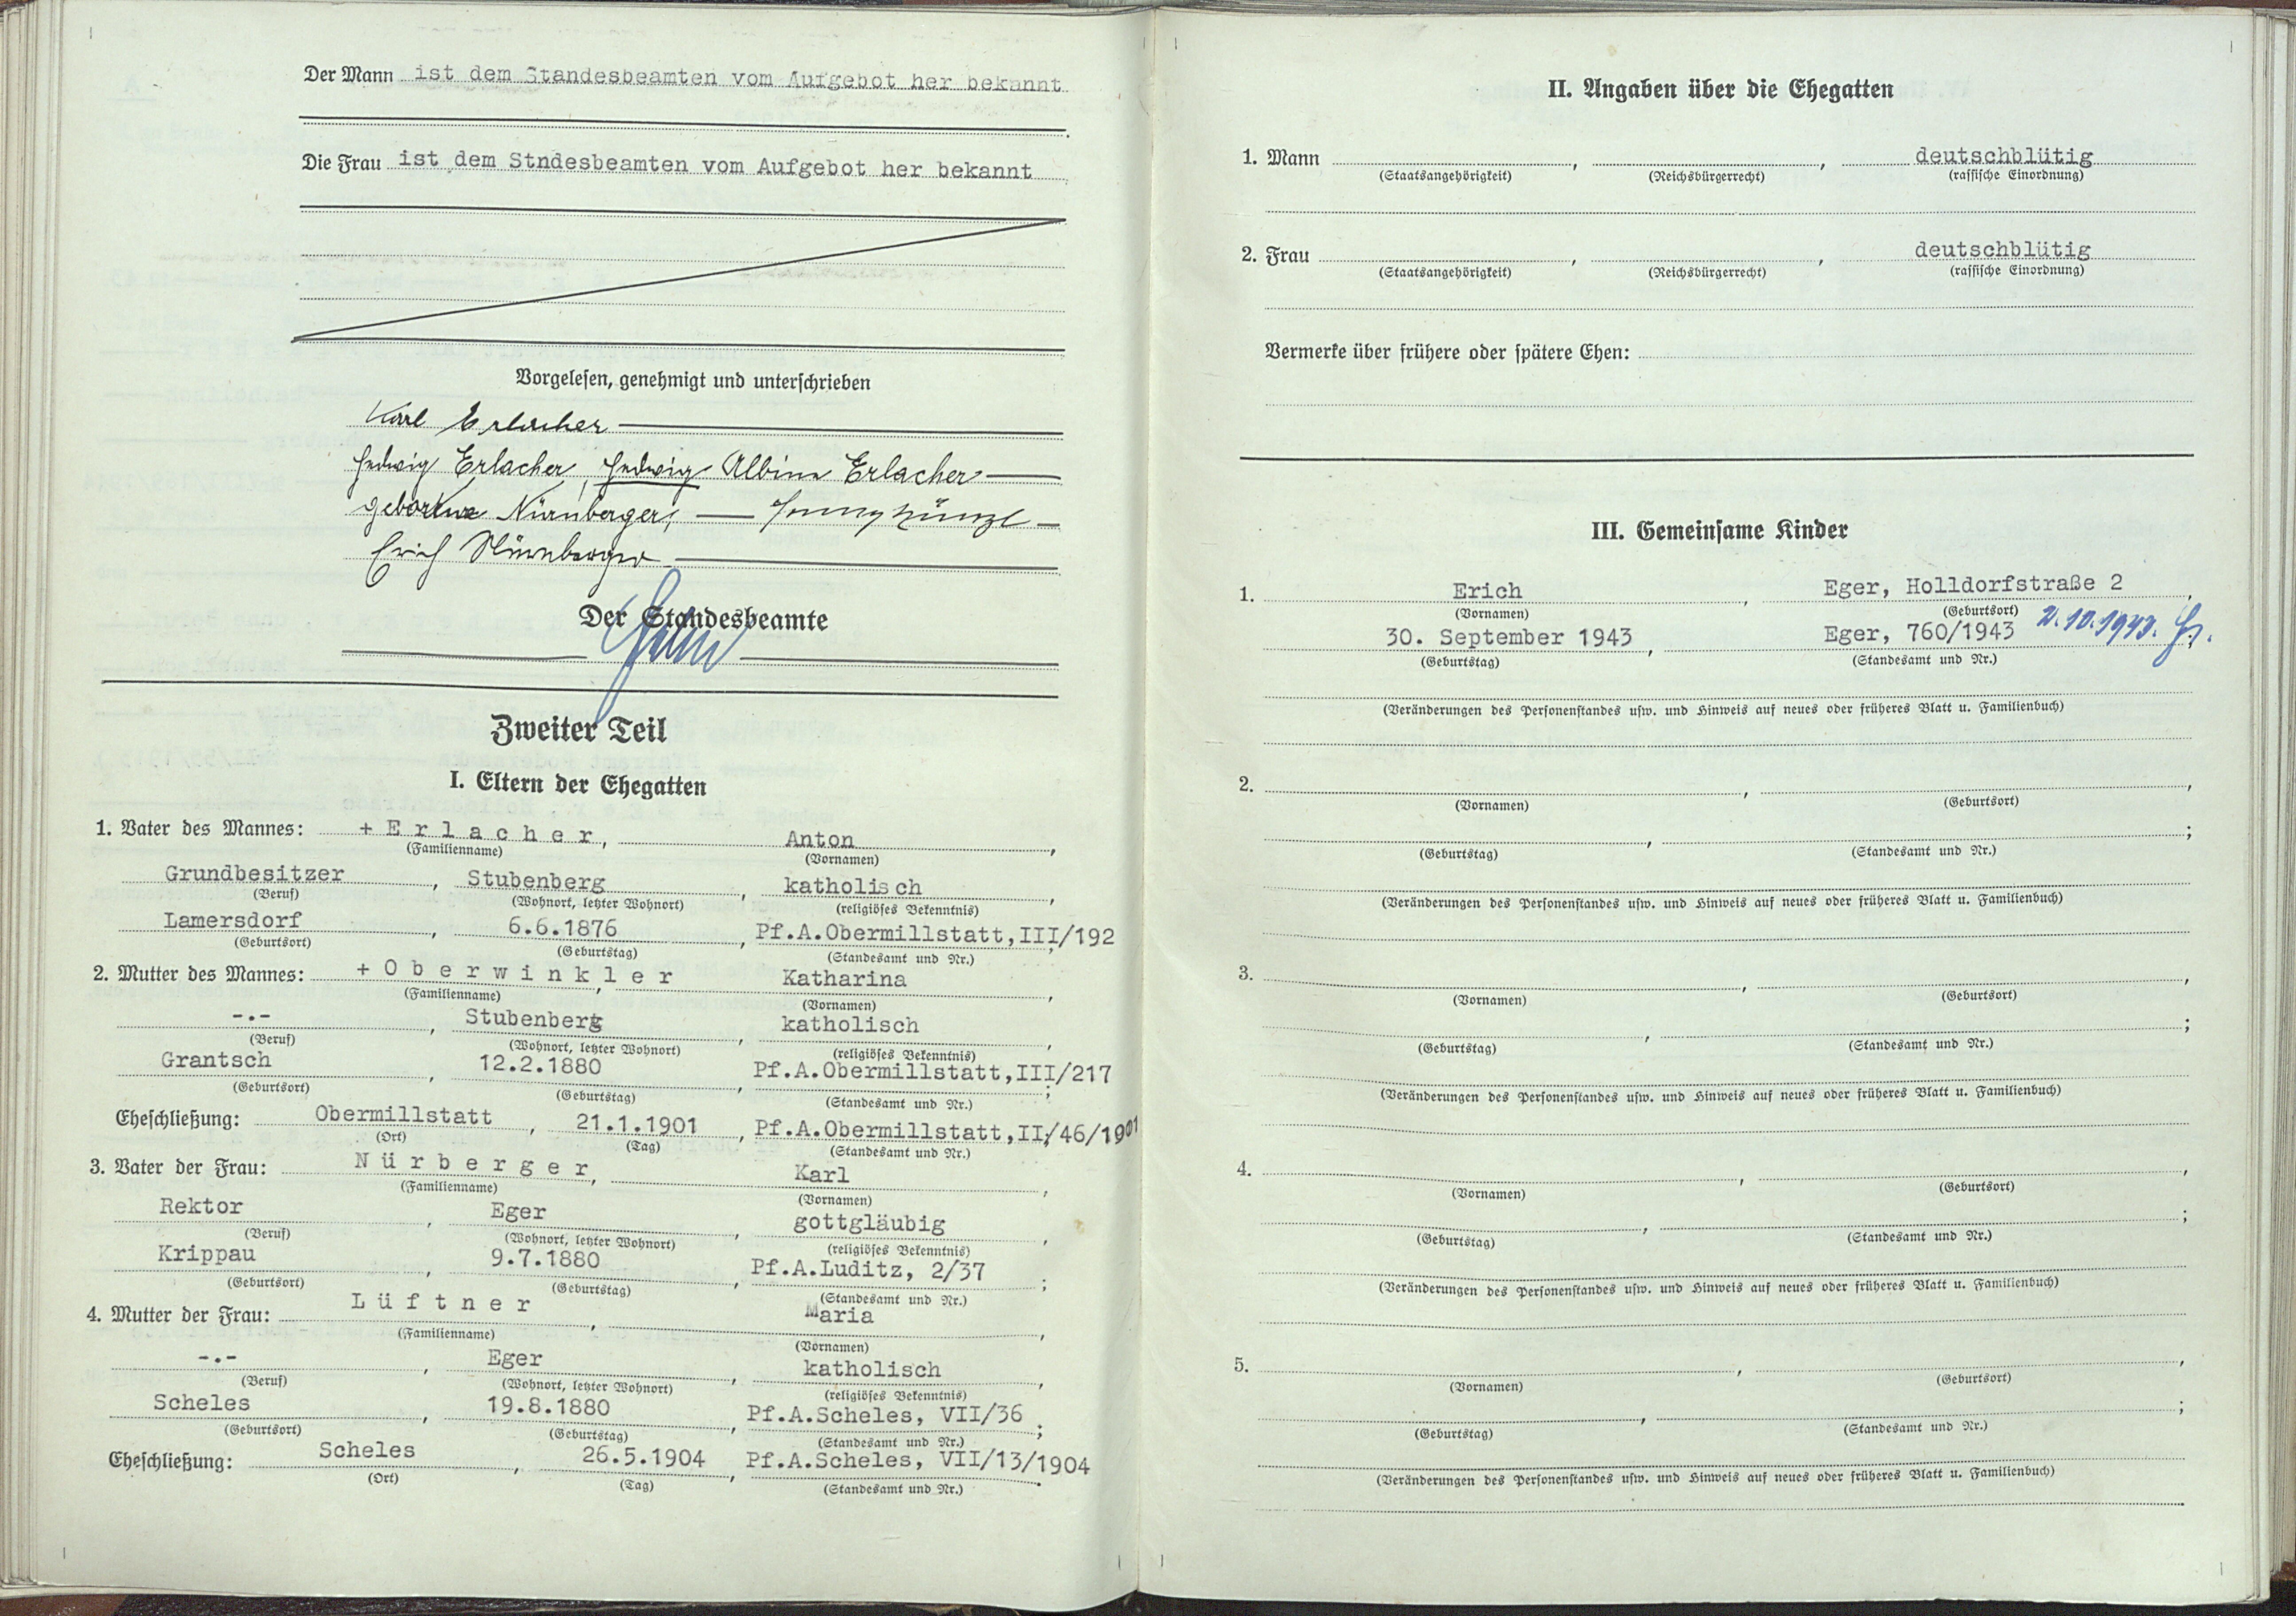 Der Mann ist dem Standesbeamten vom Aufgebot her bekannt
Die Frau ist dem Stndesbeamten vom Aufgebot her bekannt
Vorgelesen, genehmigt und unterschrieben
Karl Erlacher
Hedwig Erlacher, Hedwig Albina Erlacher
geborene Nürnberger,
Erich Nürnberger
Der Standesbeamte
Zweiter Teil
I. Eltern der Ehegatten
1. Vater des Mannes: + E r l a c h e r, Anton,
(Familienname) (Vornamen)
Grundbesitzer, Stubenberg, katholisch,
(Beruf) (Wohnort, letzter Wohnort) (religiöses Bekenntnis)
Lamersdorf, 6.6.1876, Pf.A.Obermillstatt,III/192;
(Geburtsort) (Geburtstag) (Standesamt und Nr.)
2. Mutter des Mannes: + O b e r w i n k l e r, Katharina,
(Familienname) (Vornamen)
-.-, Stubenberg, katholisch,
(Beruf) (Wohnort, letzter Wohnort) (religiöses Bekenntnis)
Grantsch, 12.2.1880, Pf.A.Obermillstatt,III/217;
(Geburtsort) (Geburtstag) (Standesamt und Nr.)
Eheschließung: Obermillstatt, 21.1.1901, Pf.A.Obermillstatt,II/46/1901;
(Ort) (Tag) (Standesamt und Nr.)
3. Vater der Frau: N ü r b e r g e r, Karl,
(Familienname) (Vornamen)
Rektor, Eger, gottgläubig,
(Beruf) (Wohnort, letzter Wohnort) (religiöses Bekenntnis)
Krippau, 9.7.1880, Pf.A.Luditz, 2/37;
(Geburtsort) (Geburtstag) (Standesamt und Nr.)
4. Mutter der Frau: L ü f t n e r, Maria,
(Familienname) (Vornamen)
-.-, Eger, katholisch,
(Beruf) (Wohnort, letzter Wohnort) (religiöses Bekenntnis)
Scheles, 19.8.1880, Pf.A.Scheles, VII/36;
(Geburtsort) (Geburtstag) (Standesamt und Nr.)
Eheschließung: Scheles, 26.5.1904, Pf.A.Scheles, VII/13/1904.
(Ort) (Tag) (Standesamt und Nr.)
II. Angaben über die Ehegatten
1. Mann , , deutschblütig
(Staatsangehörigkeit) (Reichsbürgerrecht) (rassische Einordnung)
2. Frau , , deutschblütig
(Staatsangehörigkeit) (Reichsbürgerrecht) (rassische Einordnung)
Vermerke über frühere oder spätere Ehen:
III. Gemeinsame Kinder
1. Erich, Eger, Holldorfstraße 2,
(Vornamen) (Geburtsort)
30. September 1943, Eger, 760/1943 2.10.1943.
(Geburtstag) (Standesamt und Nr.)
(Veränderungen des Personenstandes usw. und Hinweis auf neues oder früheres Blatt u. Familienbuch)
2. , ,
(Vornamen) (Geburtsort)
, ;
(Geburtstag) (Standesamt und Nr.)
(Veränderungen des Personenstandes usw. und Hinweis auf neues oder früheres Blatt u. Familienbuch)
3. , ,
(Vornamen) (Geburtsort)
, ;
(Geburtstag) (Standesamt und Nr.)
(Veränderungen des Personenstandes usw. und Hinweis auf neues oder früheres Blatt u. Familienbuch)
4. , ,
(Vornamen) (Geburtsort)
, ;
(Geburtstag) (Standesamt und Nr.)
(Veränderungen des Personenstandes usw. und Hinweis auf neues oder früheres Blatt u. Familienbuch)
5. , ,
(Vornamen) (Geburtsort)
, ;
(Geburtstag) (Standesamt und Nr.)
(Veränderungen des Personenstandes usw. und Hinweis auf neues oder früheres Blatt u. Familienbuch)